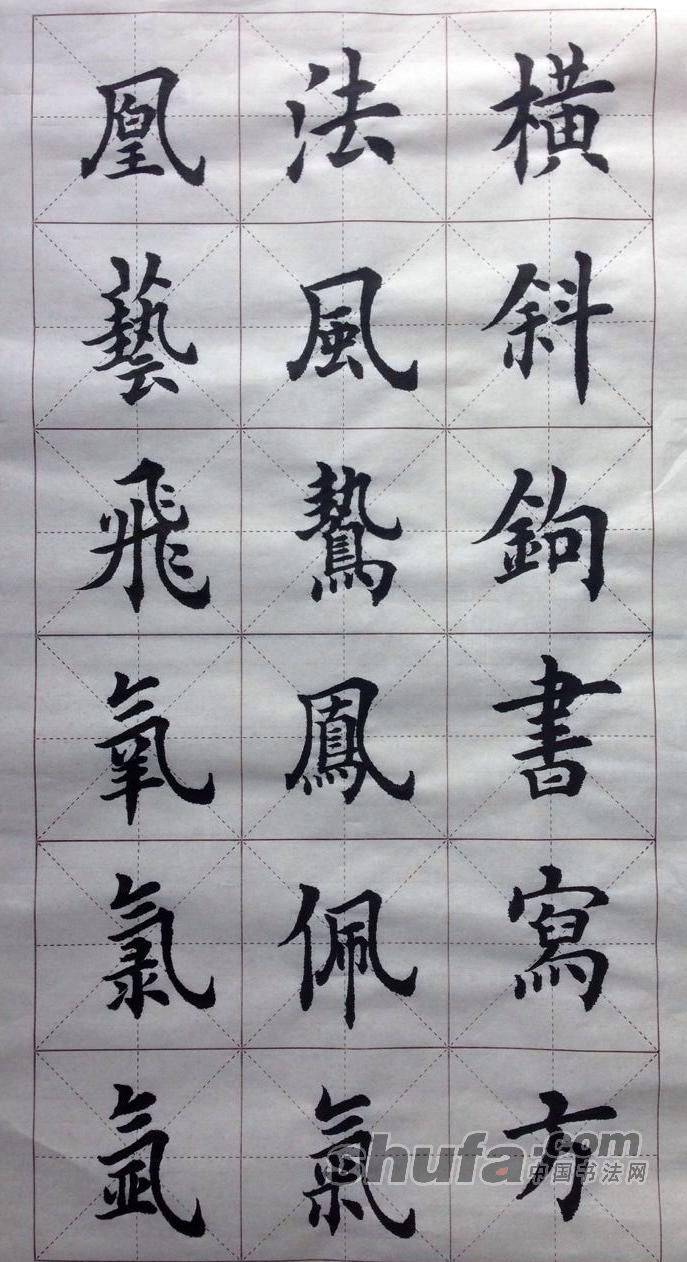 橫斜鉤書寫方
法風鷙鳳佩氣
凰藝飛氧氯氩
shufa.com
中国书法网